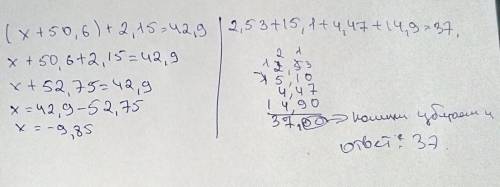 (x+50,6)+2,15=42,9
x+50,6+2,15=42,9
x+52,75=42,9
x=42,9-52,75
x=-9,85
2,53+15,1+4,47+14,9=37,
2 1
1 2,53
15,10
4,47
14,90
37,00 → убираем и
ответ: 37.